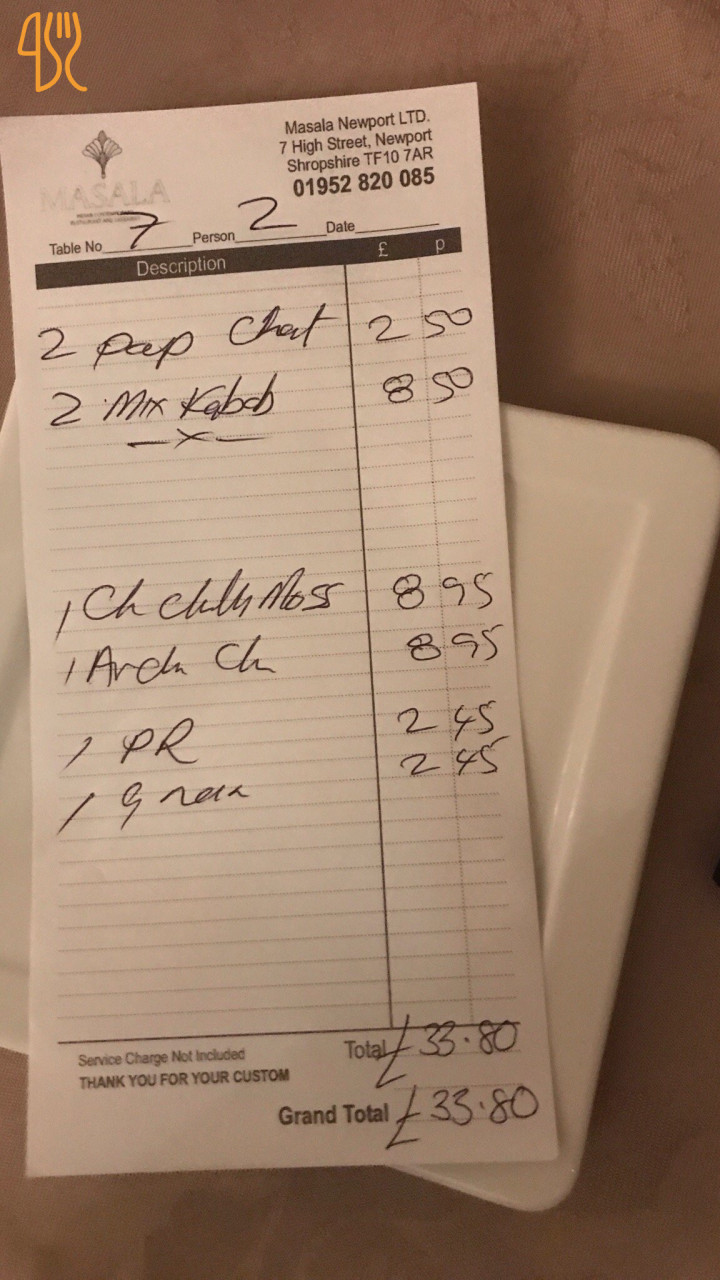 MASALA
Masala Newport LTD.
7 High Street, Newport
Shropshire TF10 7AR
01952 820 085
Table No 7 Person 2 Date
Description £ p
2 Pap Chat 2 50
2 Mix Kabab 8 50
1 Ch Chilli Moss 8 95
1 Ch 8 95
1 PR 2 45
1 G naan 2 45
Service Charge Not Included
Total £33.80
THANK YOU FOR YOUR CUSTOM
Grand Total £33.80